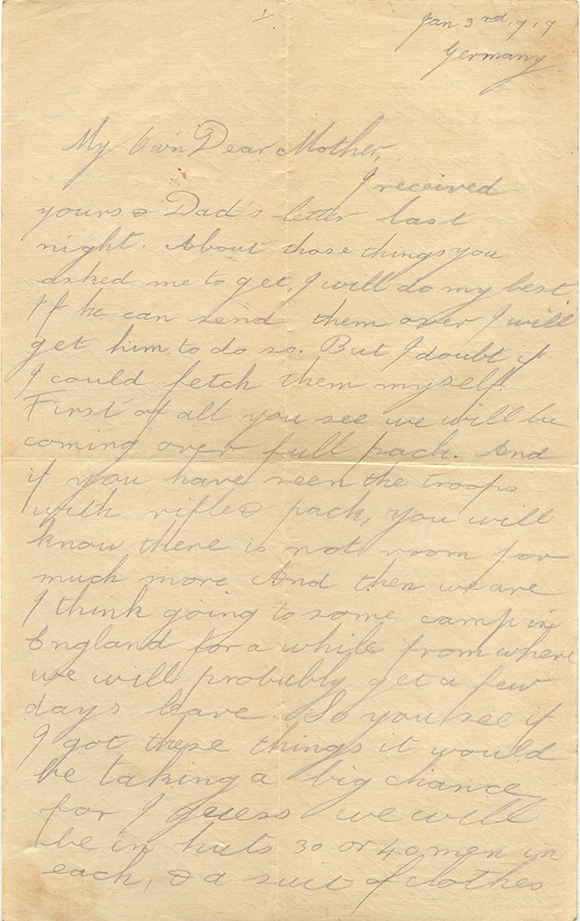 1
Jan 3rd, 1919
Germany
My Own Dear Mother,
I received
yours & Dad's letter last
night. About those things you
asked me to get, I will do my best
If he can send them over I will
get him to do so. But I doubt if
I could fetch them myself.
First of all you see we will be
coming over full pack. And
if you have seen the troops
with rifle & pack, you will
know there is not room for
much more And then we are
I think going to some camp in
England for a while from where
we will probably get a few
days leave. So you see if
I got these things it would
be taking a big chance
for I guess we will
be in huts 30 or 40 men in
each, & a suit of clothes